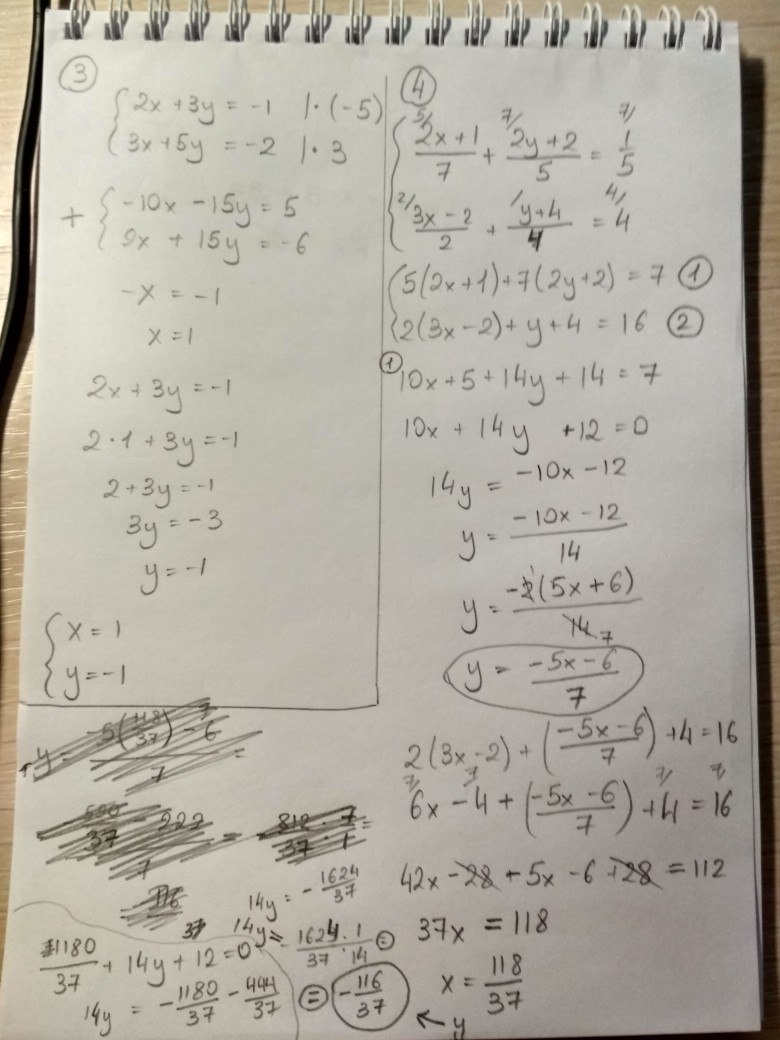 ③
{ 2x + 3y = -1 | · (-5)
{ 3x + 5y = -2 | · 3
+ { -10x - 15y = 5
{ 9x + 15y = -6
-x = -1
x = 1
2x + 3y = -1
2 · 1 + 3y = -1
2 + 3y = -1
3y = -3
y = -1
{ x = 1
{ y = -1
④
{ 5/ (2x+1)/7 + 7/ (2y+2)/5 = 7/ 1/5
{ 2/ (3x-2)/2 + / (y+4)/4 = 4/ 4
{ 5(2x+1) + 7(2y+2) = 7 ①
{ 2(3x-2) + y + 4 = 16 ②
① 10x + 5 + 14y + 14 = 7
10x + 14y + 12 = 0
14y = -10x - 12
y = (-10x - 12)/14
y = -2(5x + 6)/14 7
y = (-5x - 6)/7
2(3x-2) + ((-5x-6)/7) + 4 = 16
7/ 6x - 7/ 4 + ((-5x-6)/7) + 7/ 4 = 7/ 16
42x - 28 + 5x - 6 + 28 = 112
37x = 118
x = 118/37
14y = -1624/37
14y = 1624 · 1/37 · 14 =
1180/37 + 14y + 12 = 0
14y = -1180/37 - 444/37 = -116/37
← y